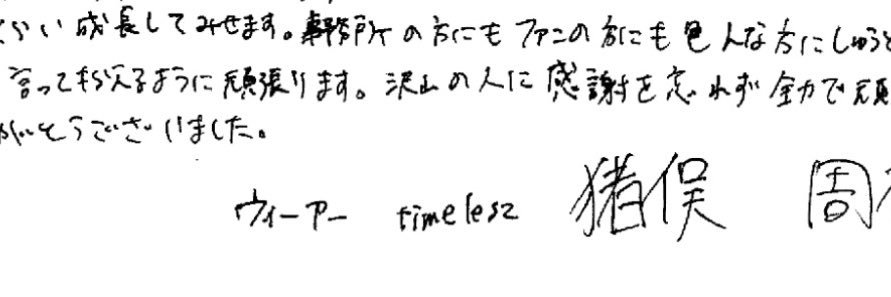 らい成長してみせます。事務所の方にもファンの方にも色んな方にしゅうと
言ってもらえるように頑張ります。沢山の人に感謝を忘れず全力で頑
がとうございました。
ウィーアー timelesz 猪俣 周